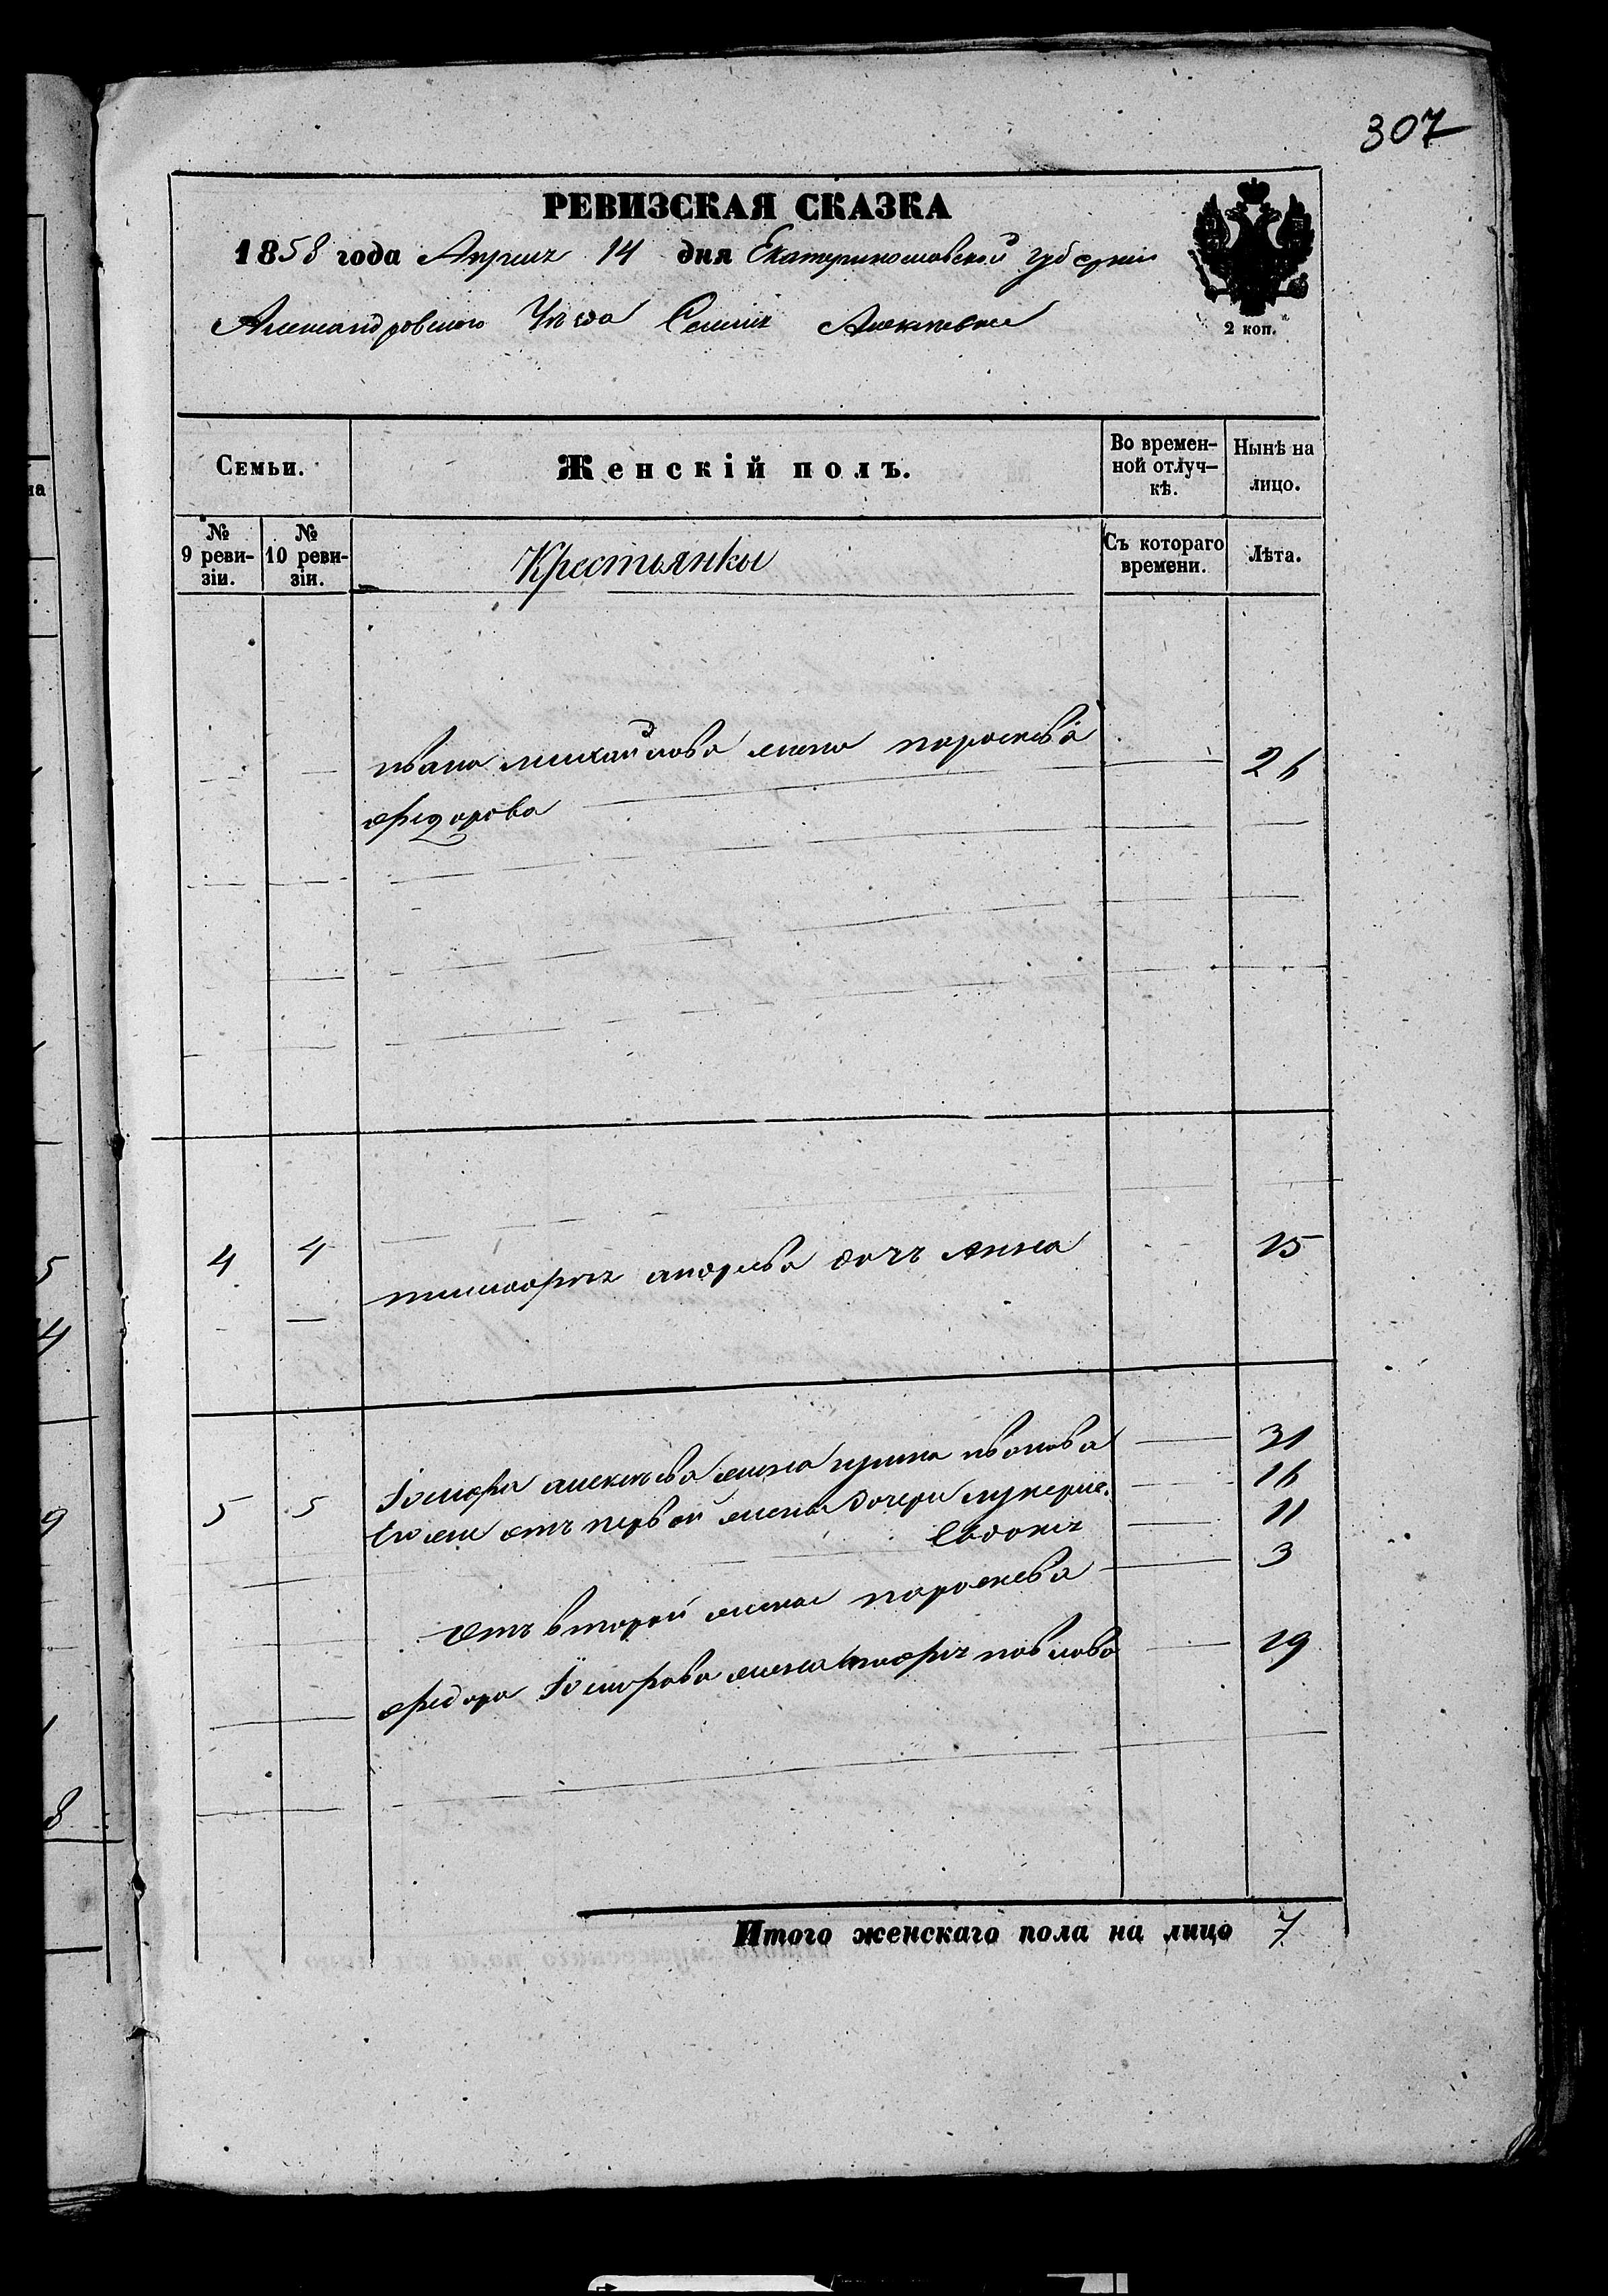 307
РЕВИЗСКАЯ СКАЗКА
1858 года Апреля 14 дня Екатеринославской губернии
Александровского Уезда Селения
2 коп.
Семьи.
Женскій полъ.
Во времен-
ной отлуч-
кѣ.
Нынѣ на
лицо.
№
9 реви-
зіи.
№
10 реви-
зіи.
Крестьянки
Съ котораго
времени.
Лѣта.
ивана михайлова жена пароскевія 26
федорова
4 4 тимофея андрева дочь Анна 15
5 5 алексѣева жена ирина иванова 31
Его же отъ первой жены дочери лукерие. 16
Евдокия 11
отъ второй жены пароскева 3
федора жена павлова 19
Итого женскаго пола на лицо 7